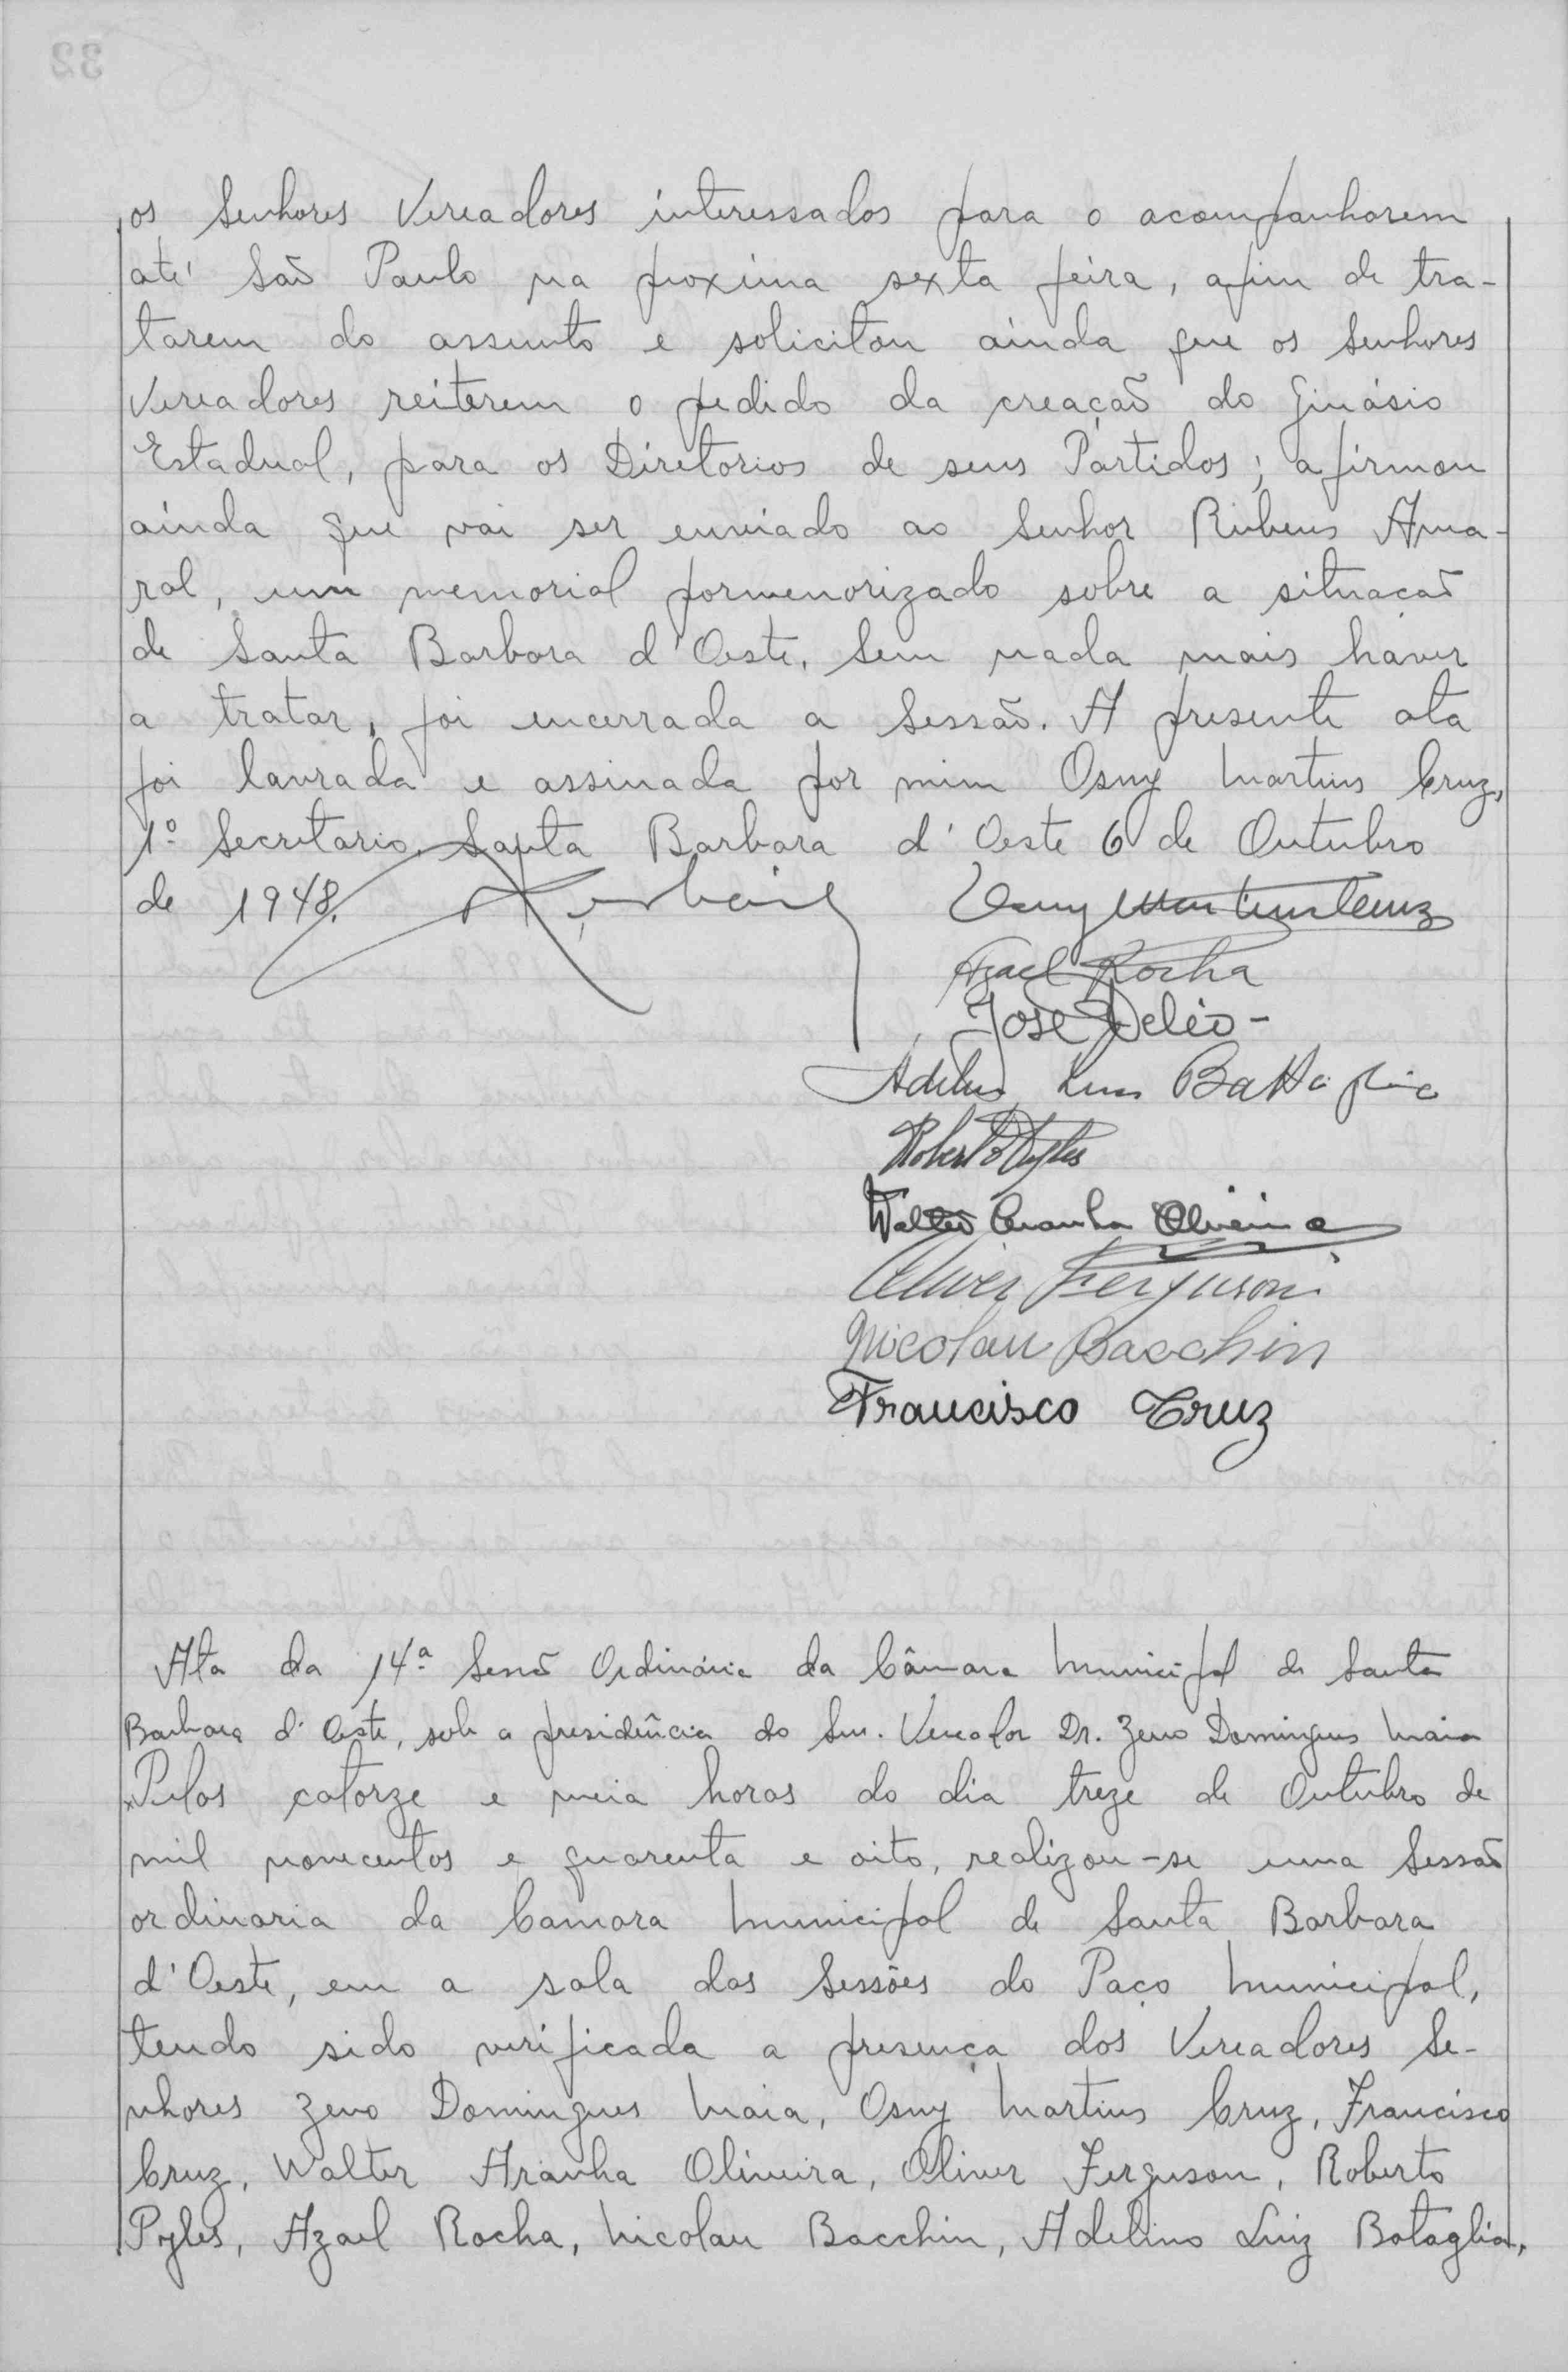 os Senhores Vereadores interessados para o acompanharem
até São Paulo na proxima sexta feira, afim de tra-
tarem do assunto e solicitou ainda que os Senhores
Vereadores reiterem o pedido da creação do Ginásio
Estadual, para os Diretorios de seus Partidos; afirmou
ainda que vai ser enviado ao Senhor Rubens Ama-
ral, um memorial pormenorizado sobre a situação
de Santa Barbara d'Oeste. Sem nada mais haver
a tratar, foi encerrada a Sessão. A presente ata
foi lavrada e assinada por mim Osny Martins Cruz,
1º Secretario. Santa Barbara d'Oeste 6 de Outubro
de 1948.
Osny Martins Cruz
Azael Rocha
José Deléo -
Adelino Luiz Battaglia
Roberto Pyles
Walter Aranha Oliveira
Oliver Ferguson
Nicolau Bacchin
Francisco Cruz
Ata da 14ª Sessão Ordinária da Câmara Municipal de Santa
Barbara d'Oeste, sob a presidência do Snr. Vereador Dr. Zeno Domingues Maia
Pelas catorze e meia horas do dia treze de Outubro de
mil novecentos e quarenta e oito, realizou-se uma Sessão
ordinaria da Camara Municipal de Santa Barbara
d'Oeste, em a sala das Sessões do Paço Municipal,
tendo sido verificada a presença dos Vereadores Se-
nhores Zeno Domingues Maia, Osny Martins Cruz, Francisco
Cruz, Walter Aranha Oliveira, Oliver Ferguson, Roberto
Pyles, Azael Rocha, Nicolau Bacchin, Adelino Luiz Bataglia,